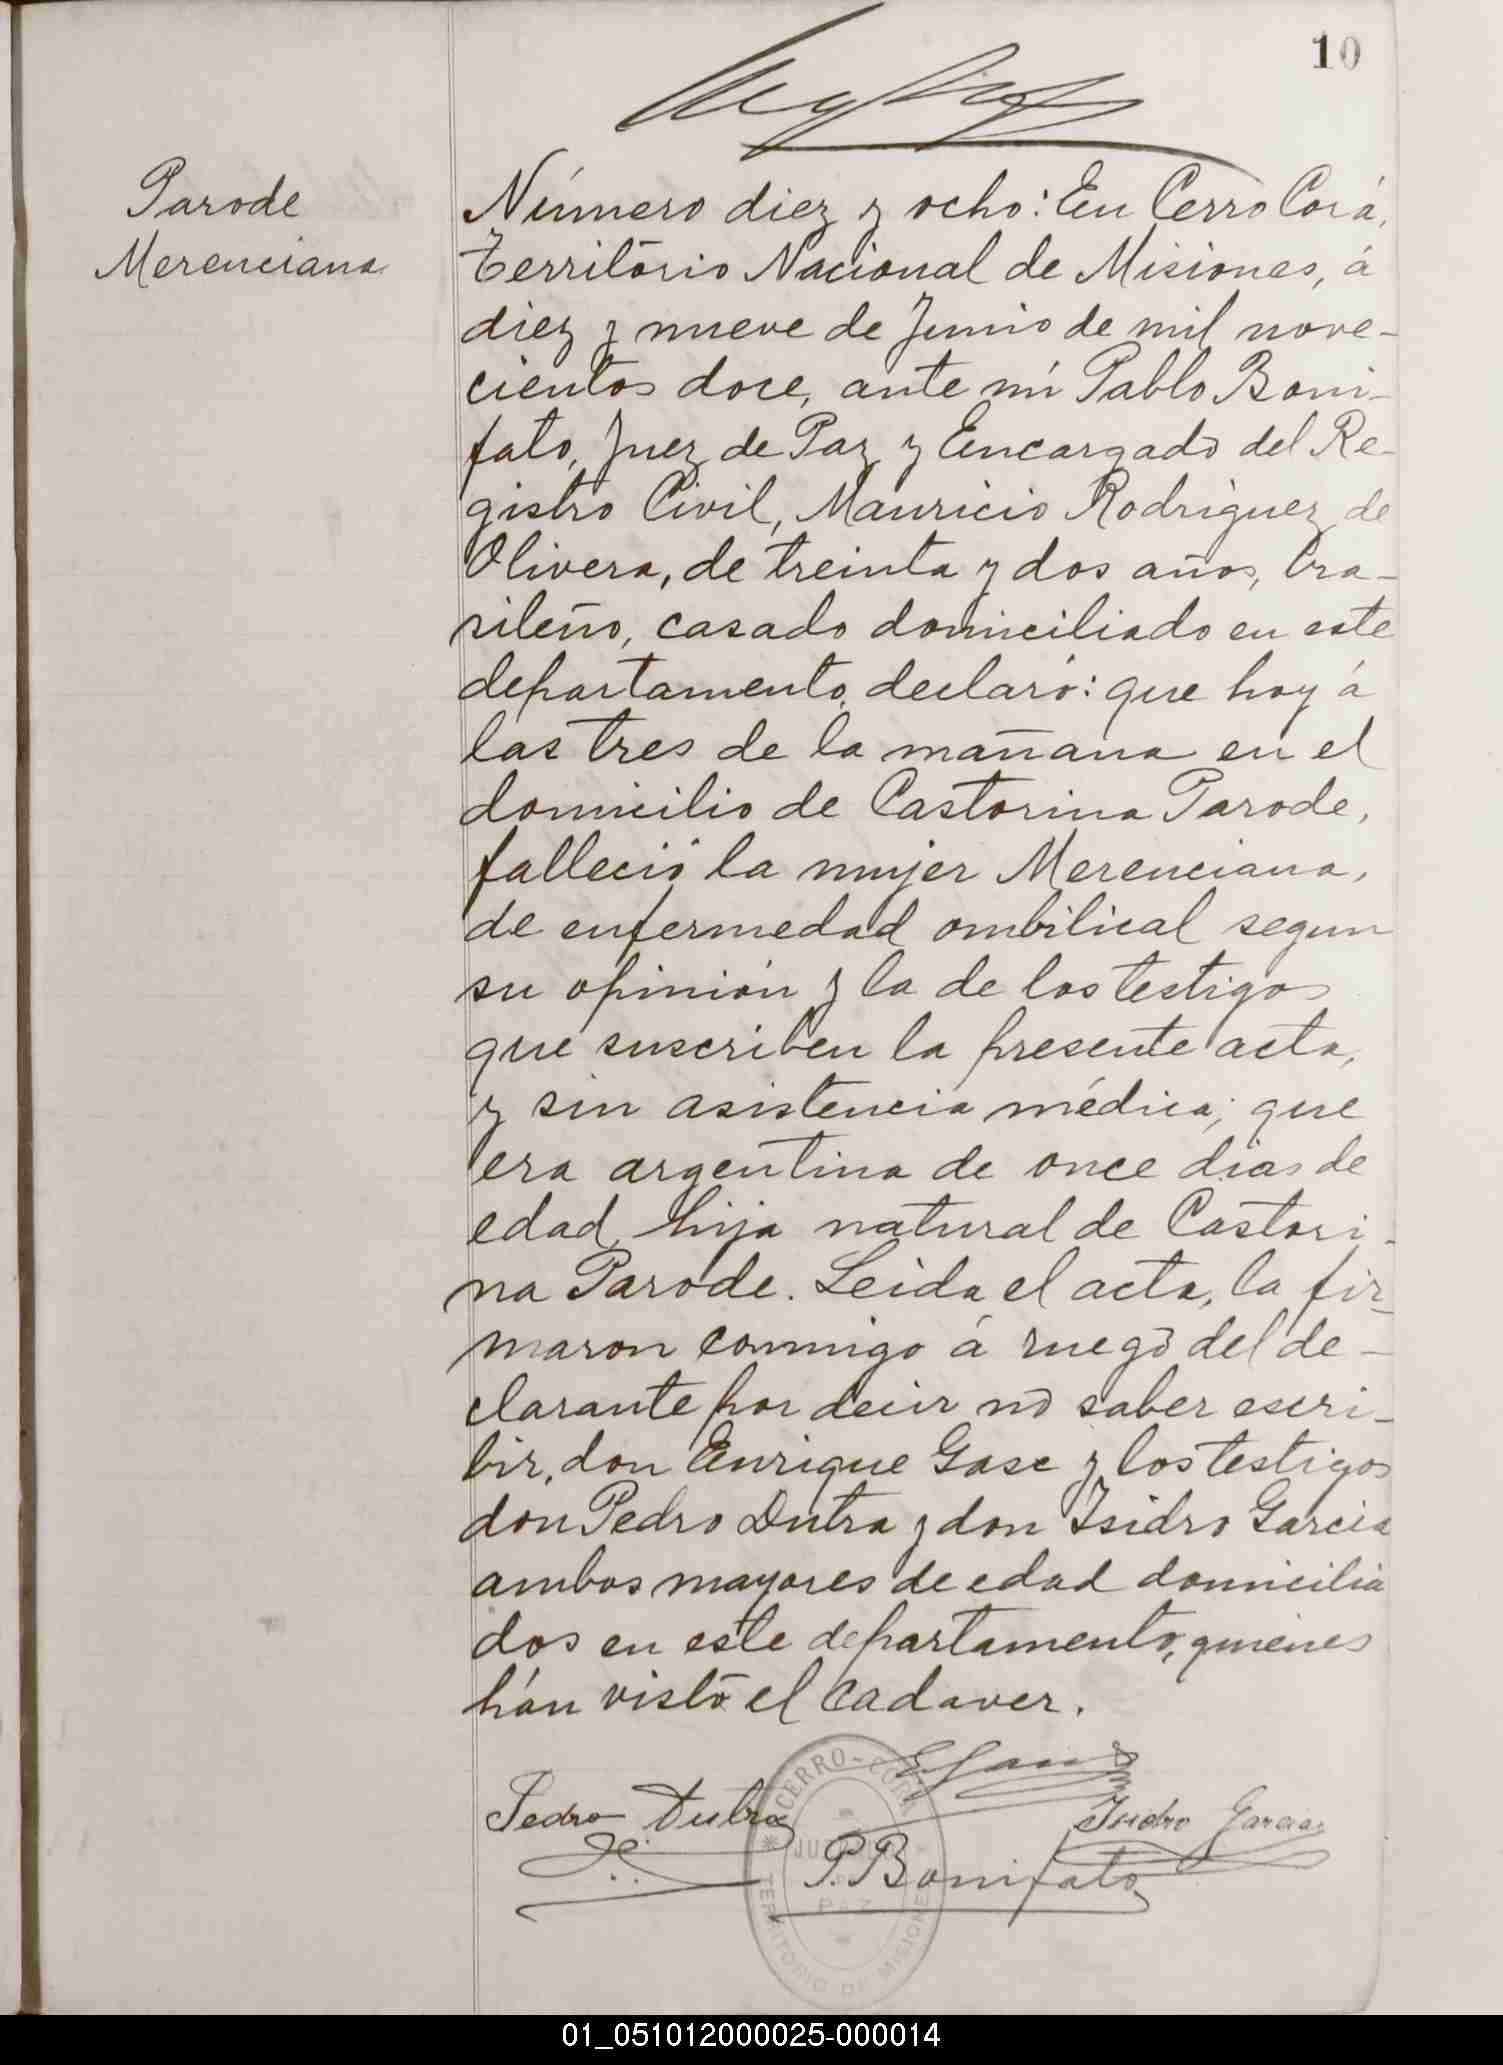 10
Parode
Merenciana
Número diez y ocho: En Cerro Corá,
Territorio Nacional de Misiones, á
diez y nueve de Junio de mil nove-
cientos doce, ante mí Pablo Boni-
fato, Juez de Paz y Encargado del Re-
gistro Civil, Mauricio Rodriguez de
Olivera, de treinta y dos años, bra-
sileño, casado domiciliado en este
departamento, declaró: que hoy á
las tres de la mañana en el
domicilio de Castorina Parode,
falleció la mujer Merenciana,
de enfermedad ombilical segun
su opinión y la de los testigos
que suscriben la presente acta,
y sin asistencia médica; que
era argentina de once dias de
edad, hija natural de Castori-
na Parode. Leida el acta, la fir-
maron conmigo á ruego del de-
clarante por decir no saber escri-
bir, don Enrique Gase y los testigos
don Pedro Dutra y don Isidro Garcia
ambos mayores de edad domicilia
dos en este departamento, quienes
hán visto el cadaver.
Pedro Dutra
Isidro Garcia
P. Bonifato
CERRO-CORA
JUZGADO
DE
PAZ
TERRITORIO DE MISIONES
01_051012000025-000014